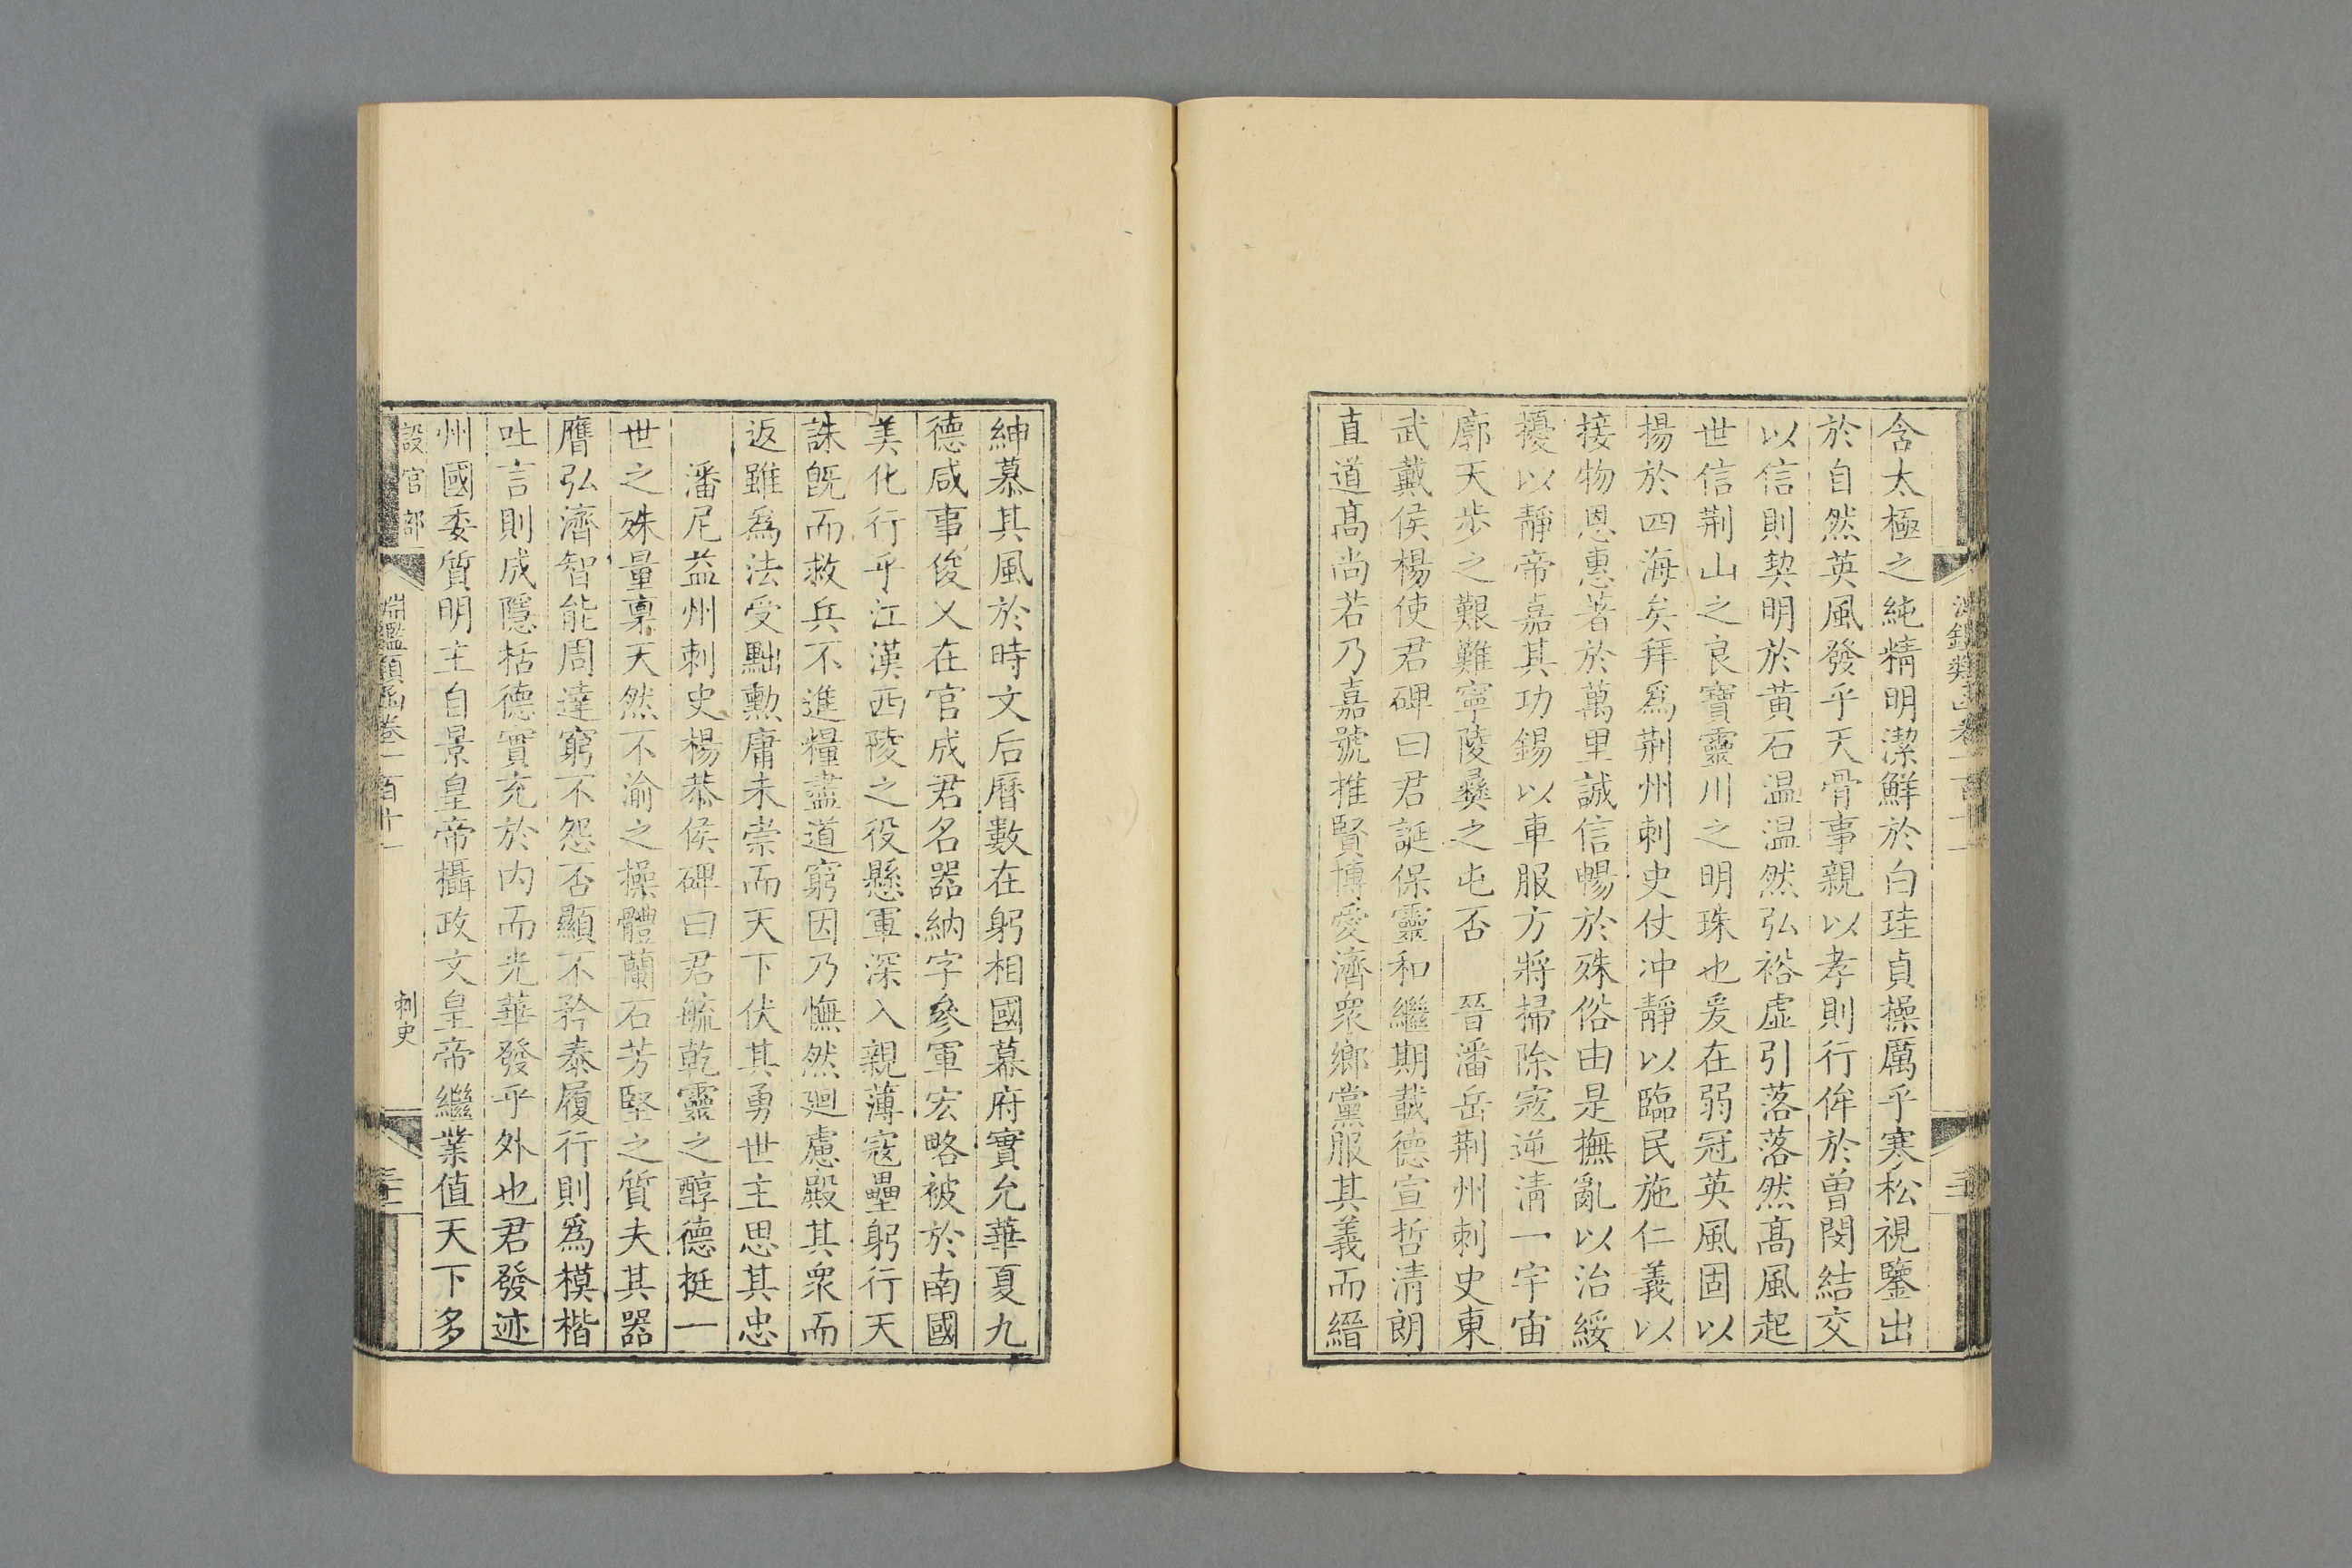 含太極之純精明潔鮮於白珪貞操厲乎寒松視鑒出
於自然英風發乎天骨事親以孝則行侔於曾閔結交
以信則契明於黃石温温然弘裕虚引落落然髙風起
世信荆山之良寶靈川之明珠也爰在弱冠英風固以
揚於四海矣拜爲荆州刺史仗冲靜以臨民施仁義以
接物恩惠著於萬里誠信暢於殊俗由是撫亂以治綏
擾以靜帝嘉其功錫以車服方將掃除寇逆清一宇宙
廓天步之艱難寧陵彛之屯否　晉潘岳荆州刺史東
武戴侯楊使君碑曰君誕保靈和繼期載德宣哲清朗
直道髙尚若乃嘉號推賢博愛濟衆鄉黨服其義而縉
紳慕其風於時文后曆數在躬相國幕府實允華夏九
德咸事俊乂在官成君名器納字參軍宏略被於南國
美化行乎江漢西陵之役懸軍深入親薄寇壘躬行天
誅旣而救兵不進糧盡道窮因乃憮然廻慮殿其衆而
返雖爲法受黜勲庸未崇而天下伏其勇世主思其忠
潘尼益州刺史楊恭侯碑曰君毓乾靈之醇德挺一
世之殊量禀天然不渝之操體蘭石芳堅之質夫其器
膺弘濟智能周達窮不怨否顯不矜泰履行則爲模楷
吐言則成隱栝德實充於内而光華發乎外也君發迹
州國委質明主自景皇帝攝政文皇帝繼業值天下多
設官部
淵鑑類函卷一百十一
刺史